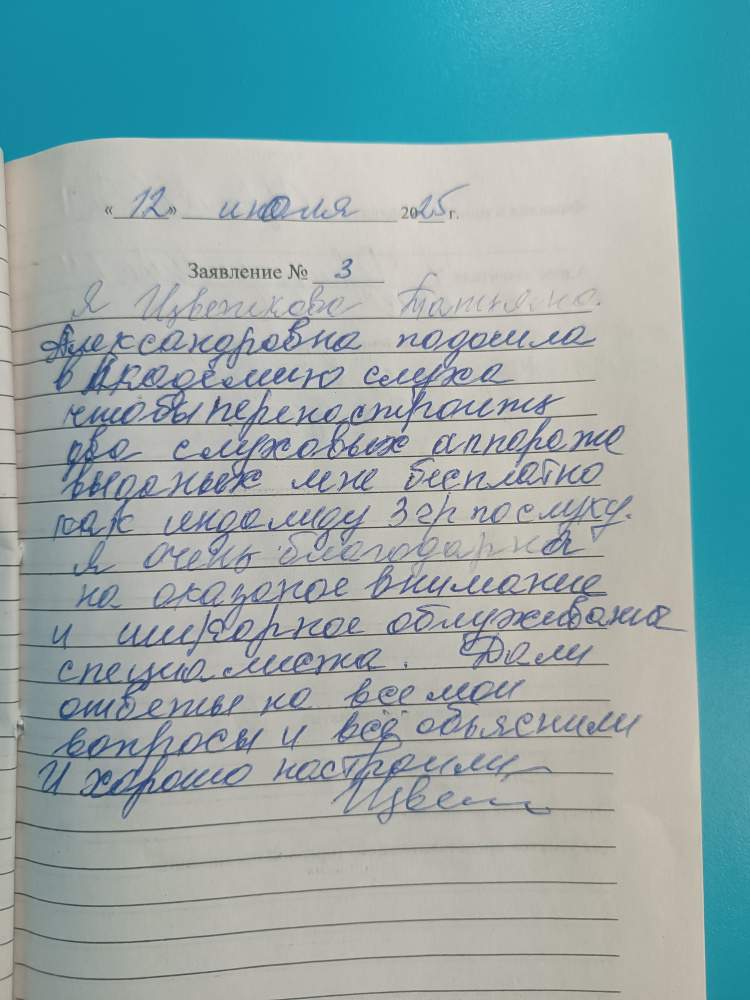 «12» июля 2025 г.
Заявление № 3
Я Цветкова Татьяна.
Александровна подошла
в Академию слуха
чтобы перенастроить
два слуховых аппарата
выданых мне бесплатно
как индалиду 3 гр по слуху.
Я очень благодарна
на оказаное внимание
и шикарное облуживание
специалиста. Дали
ответы на все мои
вопросы и всё обьяснили
И хорошо настроили